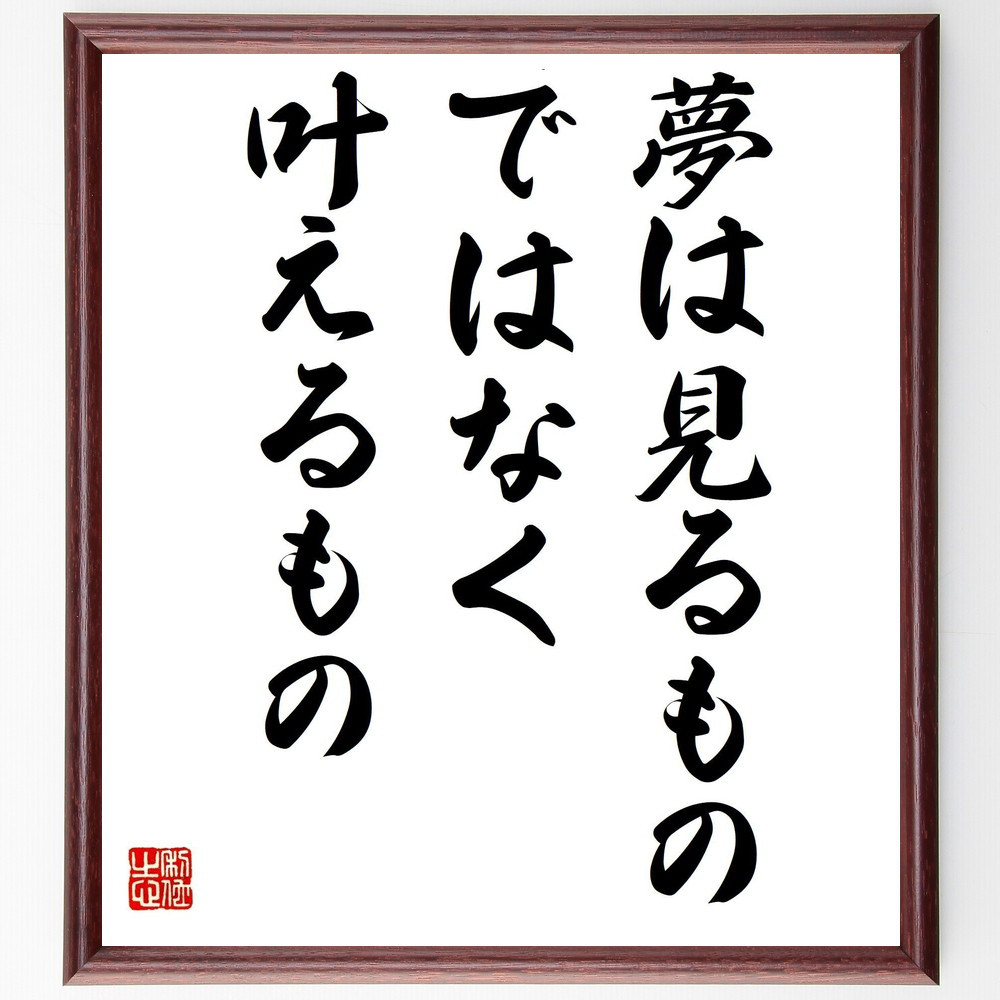 夢は見るもの
ではなく
叶えるもの